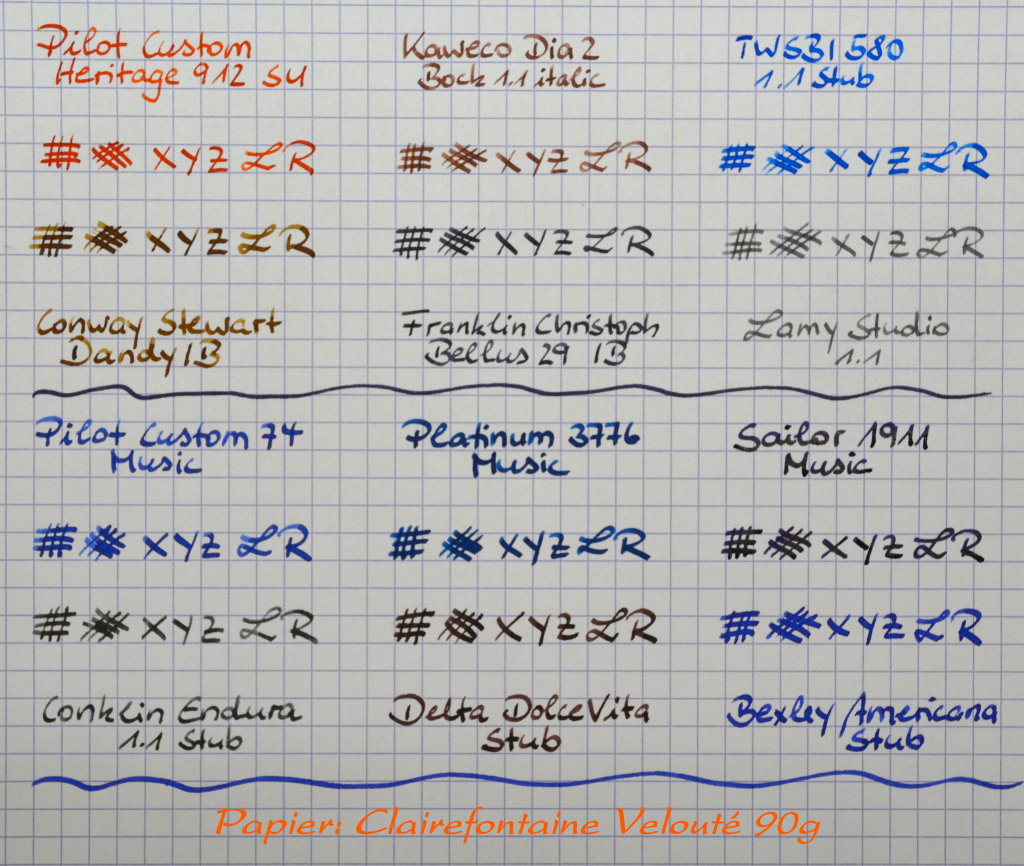 Pilot Custom
Heritage 912 SU
Kaweco Dia 2
Bock 1.1 italic
TWSBI 580
1.1 Stub
# # X Y Z L R
# # X Y Z L R
# # X Y Z L R
# # X Y Z L R
# # X Y Z L R
# # X Y Z L R
Conway Stewart
Dandy IB
Franklin Christoph
Bellus 29 IB
Lamy Studio
1.1
Pilot Custom 74
Music
Platinum 3776
Music
Sailor 1911
Music
# # X Y Z L R
# # X Y Z L R
# # X Y Z L R
# # X Y Z L R
# # X Y Z L R
# # X Y Z L R
Conklin Endura
1.1 Stub
Delta DolceVita
Stub
Bexley Americana
Stub
Papier: Clairefontaine Velouté 90g